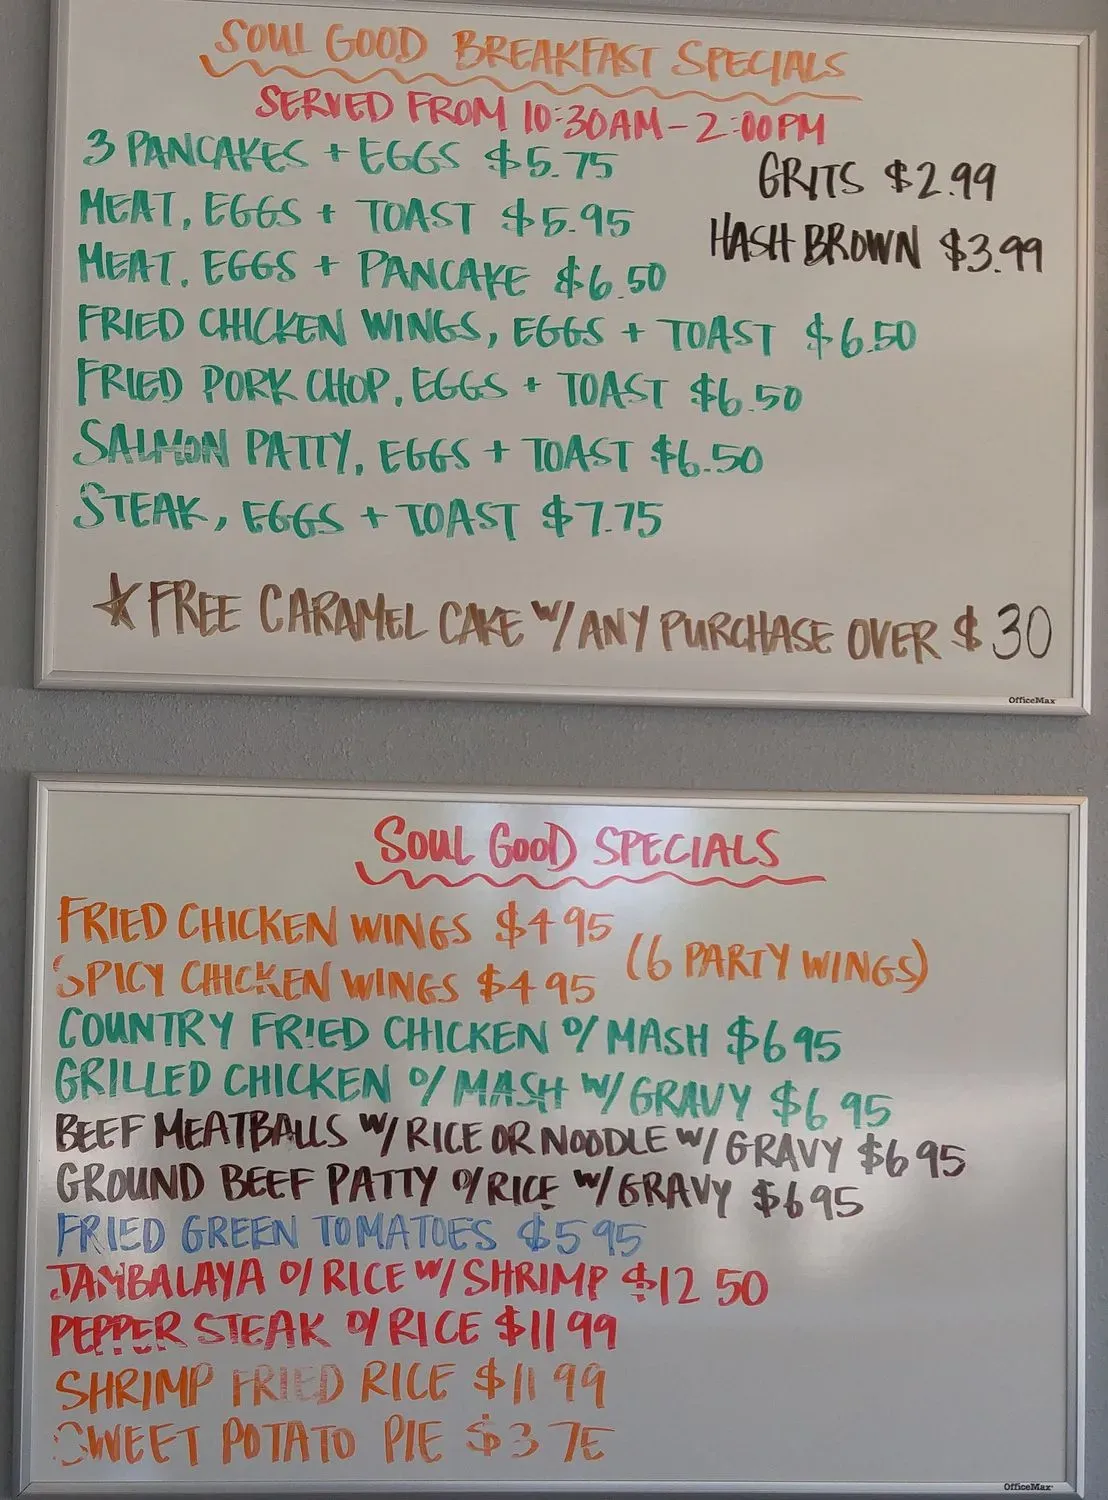 SOUL GOOD BREAKFAST SPECIALS
SERVED FROM 10:30AM-2:00PM
3 PANCAKES + EGGS $5.75
GRITS $2.99
MEAT, EGGS + TOAST $5.95
HASH BROWN $3.99
MEAT, EGGS + PANCAKE $6.50
FRIED CHICKEN WINGS, EGGS + TOAST $6.50
FRIED PORK CHOP, EGGS + TOAST $6.50
SALMON PATTY, EGGS + TOAST $6.50
STEAK, EGGS + TOAST $7.75
★FREE CARAMEL CAKE W/ANY PURCHASE OVER $30
OfficeMax
SOUL GOOD SPECIALS
FRIED CHICKEN WINGS $4 95
(6 PARTY WINGS)
SPICY CHICKEN WINGS $4 95
COUNTRY FRIED CHICKEN O/MASH $6 95
GRILLED CHICKEN O/MASH W/GRAVY $6 95
BEEF MEATBALLS W/RICE OR NOODLE W/GRAVY $6 95
GROUND BEEF PATTY O/RICE W/GRAVY $6 95
FRIED GREEN TOMATOES $5 95
JAMBALAYA O/RICE W/SHRIMP $12 50
PEPPER STEAK O/RICE $11 99
SHRIMP FRIED RICE $11 99
SWEET POTATO PIE $3
OfficeMax